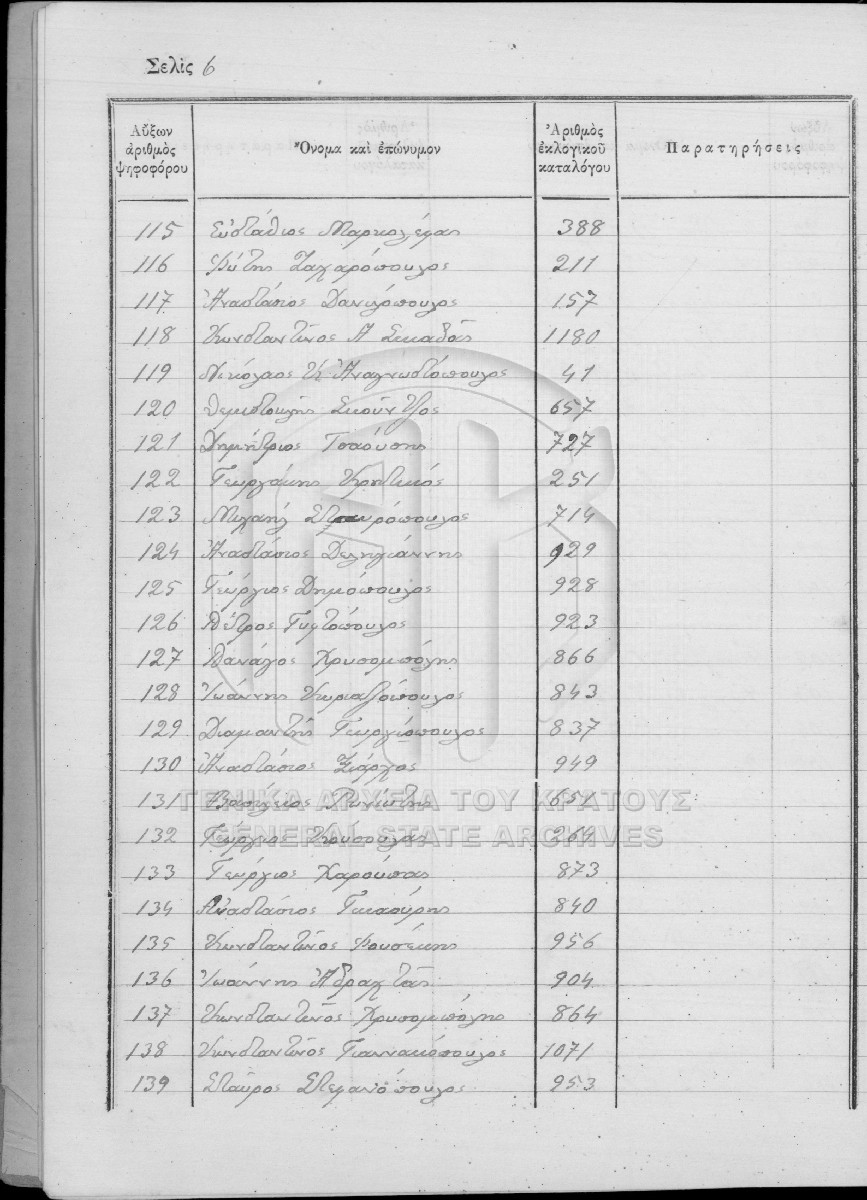 Σελὶς 6
Αὔξων ἀριθμὸς ψηφοφόρου Ὄνομα καὶ ἐπώνυμον Ἀριθμὸς ἐκλογικοῦ καταλόγου Παρατηρήσεις
115 Εὐστάθιος Μαρκολέφας 388
116 Φώτης Ζαχαρόπουλος 211
117 Ἀναστάσιος Δανιλόπουλος 157
118 Κωνσταντῖνος Α Σικαδᾶς 1180
119 Νικόλαος Κ Ἀναγνωστόπουλος 41
120 Θεμιστοκλῆς Σκούντζος 657
121 Δημήτριος Τσαούσης 727
122 Γεωργάκης Κρητικός 251
123 Μιχαήλ Σταυρόπουλος 714
124 Ἀναστάσιος Δεληγιάννης 929
125 Γεώργιος Δημόπουλος 928
126 Πέτρος Γυφτόπουλος 923
127 Πανάγος Χρυσομπόλης 866
128 Ἰωάννης Κυριαζόπουλος 843
129 Διαμαντής Γεωργιόπουλος 837
130 Ἀναστάσιος Ζιάγκος 949
131 Βασίλειος 651
132 Γεώργιος Κούσουλας 264
133 Γεώργιος Χαρούπας 873
134 Ἀναστάσιος Γκιαούρης 840
135 Κωνσταντῖνος Φουσέκης 956
136 Ἰωάννης Ἀδραχτᾶς 904
137 Κωνσταντῖνος Χρυσομπόλης 864
138 Κωνσταντῖνος Γιαννακόπουλος 1071
139 Σταῦρος Στεφανόπουλος 953
ΓΕΝΙΚΑ ΑΡΧΕΙΑ ΤΟΥ ΚΡΑΤΟΥΣ
GENERAL STATE ARCHIVES